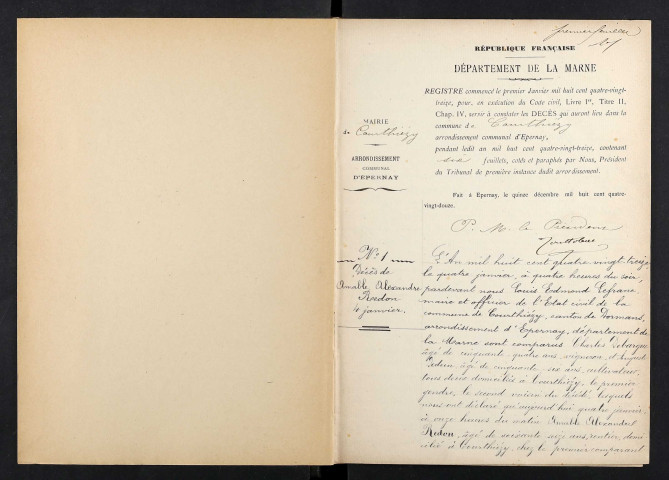 premier feuillet
RÉPUBLIQUE FRANÇAISE
DÉPARTEMENT DE LA MARNE
REGISTRE commencé le premier Janvier mil huit cent quatre-vingt-
treize, pour, en exécution du Code civil, Livre Ier, Titre II,
Chap. IV, servir à constater les DÉCÈS qui auront lieu dans la
commune de Courthiézy
arrondissement communal d'Epernay,
pendant ledit an mil huit cent quatre-vingt-treize, contenant
feuillets, cotés et paraphés par Nous, Président
du Tribunal de première instance dudit arrondissement.
Fait à Epernay, le quinze décembre mil huit cent quatre-
vingt-douze.
P. M. le Président
MAIRIE
de Courthiézy
ARRONDISSEMENT
COMMUNAL
D'ÉPERNAY
No 1
Décès de
Amable Alexandre
Redon
4 janvier.
L'An mil huit cent quatre vingt-treize
le quatre janvier, à quatre heures du soir,
pardevant nous Louis Edmond Lefranc
maire et officier de l'Etat civil de la
commune de Courthiézy, canton de Dormans,
arrondissement d'Epernay, département de
la Marne sont comparus Charles
âgé de cinquante quatre ans, vigneron, et
Redon, âgé de cinquante six ans, cultivateur,
tous deux domiciliés à Courthiézy, le premier
gendre, le second voisin du décédé, lesquels
nous ont déclaré qu'aujourd'hui quatre janvier,
à onze heures du matin Amable Alexandre
Redon, âgé de soixante ans, rentier, domi
cilié à Courthiézy, chez le premier comparant